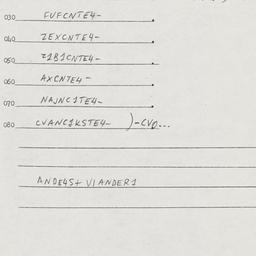 030 FUFCNTE4-
040 ZEXCNTE4-
050 Z1B1CNTE4-
060 AXCNTE4-
070 NAJNC1TE4-
080 CVANC1KSTE4- )-CVO...
ANDE4S+ V1ANDER1